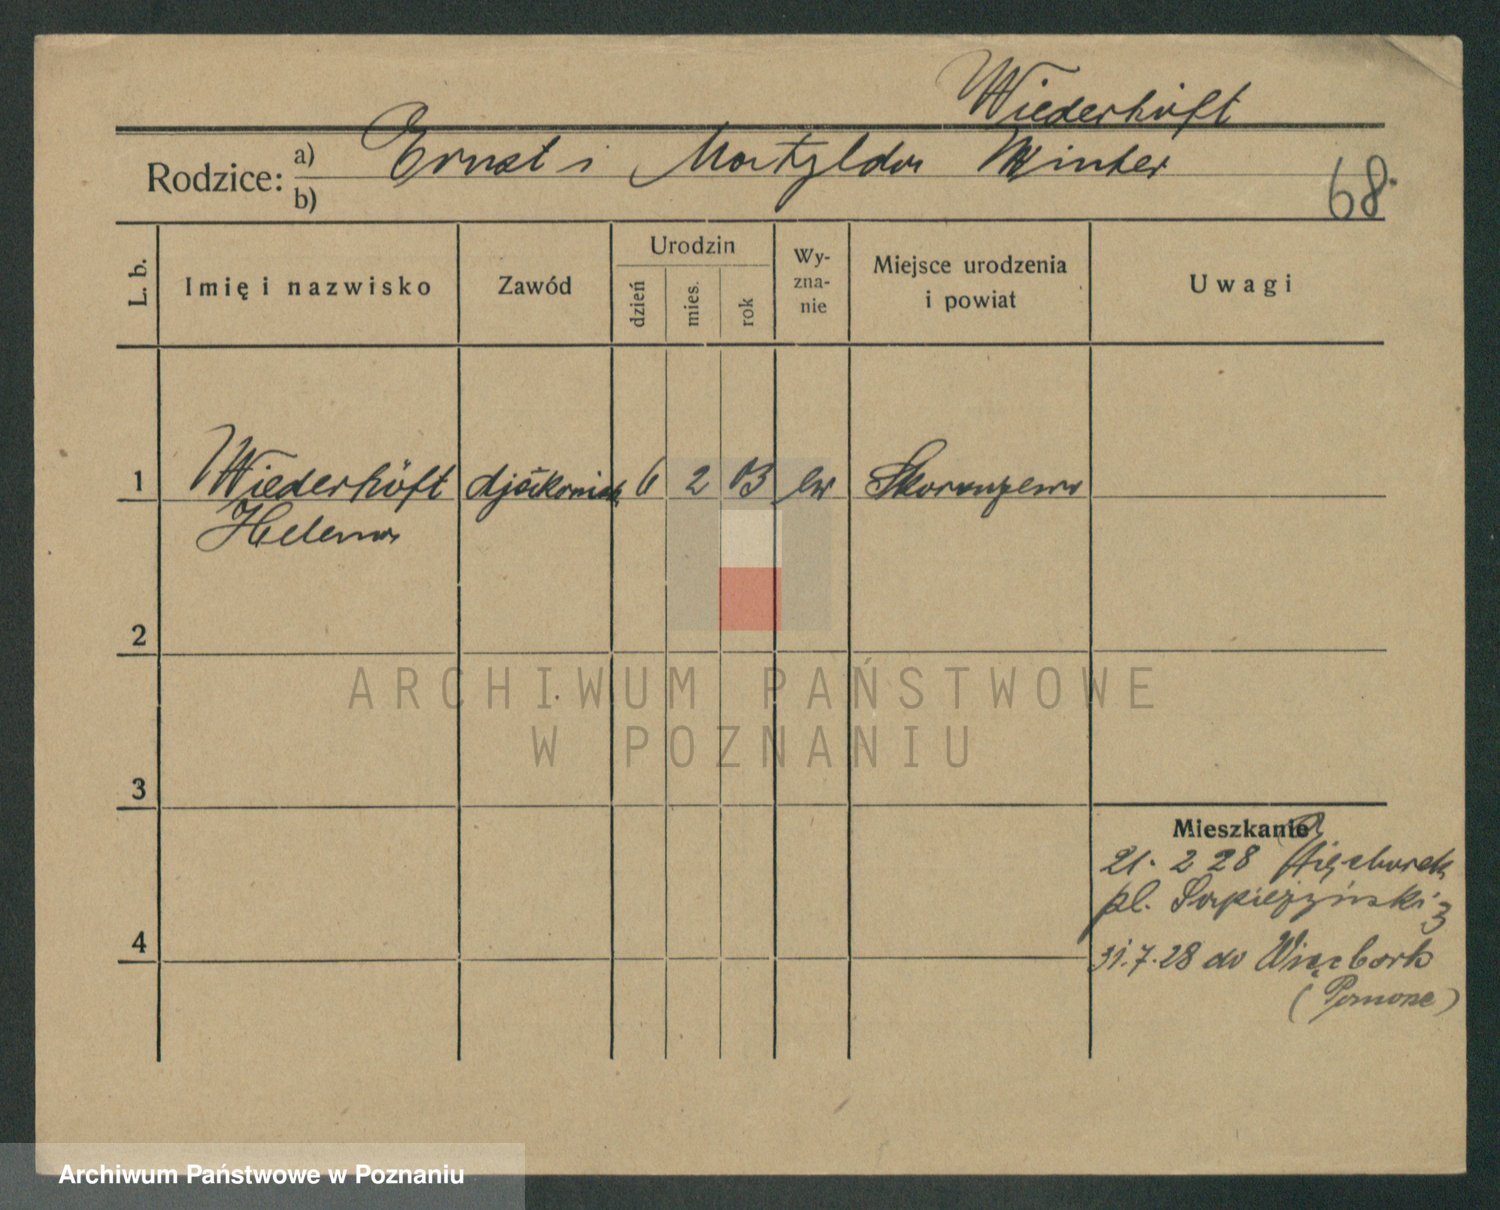 Wiederhöft
Rodzice: a) Ernst i Matylda Winter
b)
68.
L. b.
Imię i nazwisko
Zawód
Urodzin
dzień
mies.
rok
Wy-
zna-
nie
Miejsce urodzenia
i powiat
Uwagi
1 Wiederhöft djakonisk 6 2 03 ew
Helena
2
3
4
Mieszkanie
21. 2 28
pl. Sapieżyński 3
31.7.28 do Więcbork
(Pomorze)
ARCHIWUM PAŃSTWOWE
W POZNANIU
Archiwum Państwowe w Poznaniu